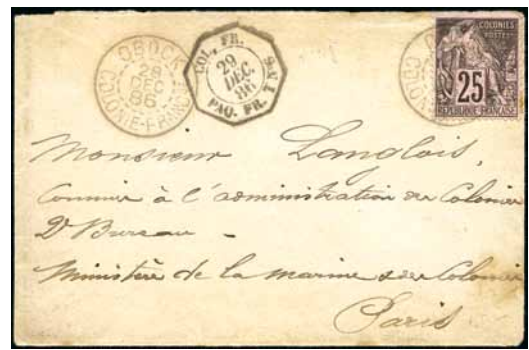 OBOCK
28
DEC
86
COLONIE-FRANCSE
COL. FR.
29
DEC.
86
PAQ. FR. N° 1
COLONIES
POSTES
25
REPUBLIQUE FRANÇAISE
Monsieur Langlois,
Commis à l'administration des Colonies
2e Bureau -
Ministère de la marine & des Colonies
Paris